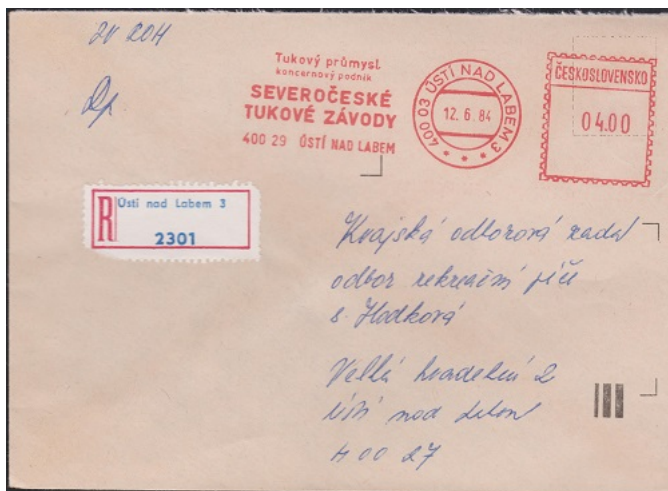 Tukový průmysl
koncernový podnik
SEVEROČESKÉ
TUKOVÉ ZÁVODY
400 29 ÚSTÍ NAD LABEM
400 03 ÚSTÍ NAD LABEM 3
12. 6. 84
ČESKOSLOVENSKO
04.00
R
Ústí nad Labem 3
2301
Krajská odborová rada
odbor rekreační péče
s. Hodková
Velká hradební 2
Ústí nad
400 27